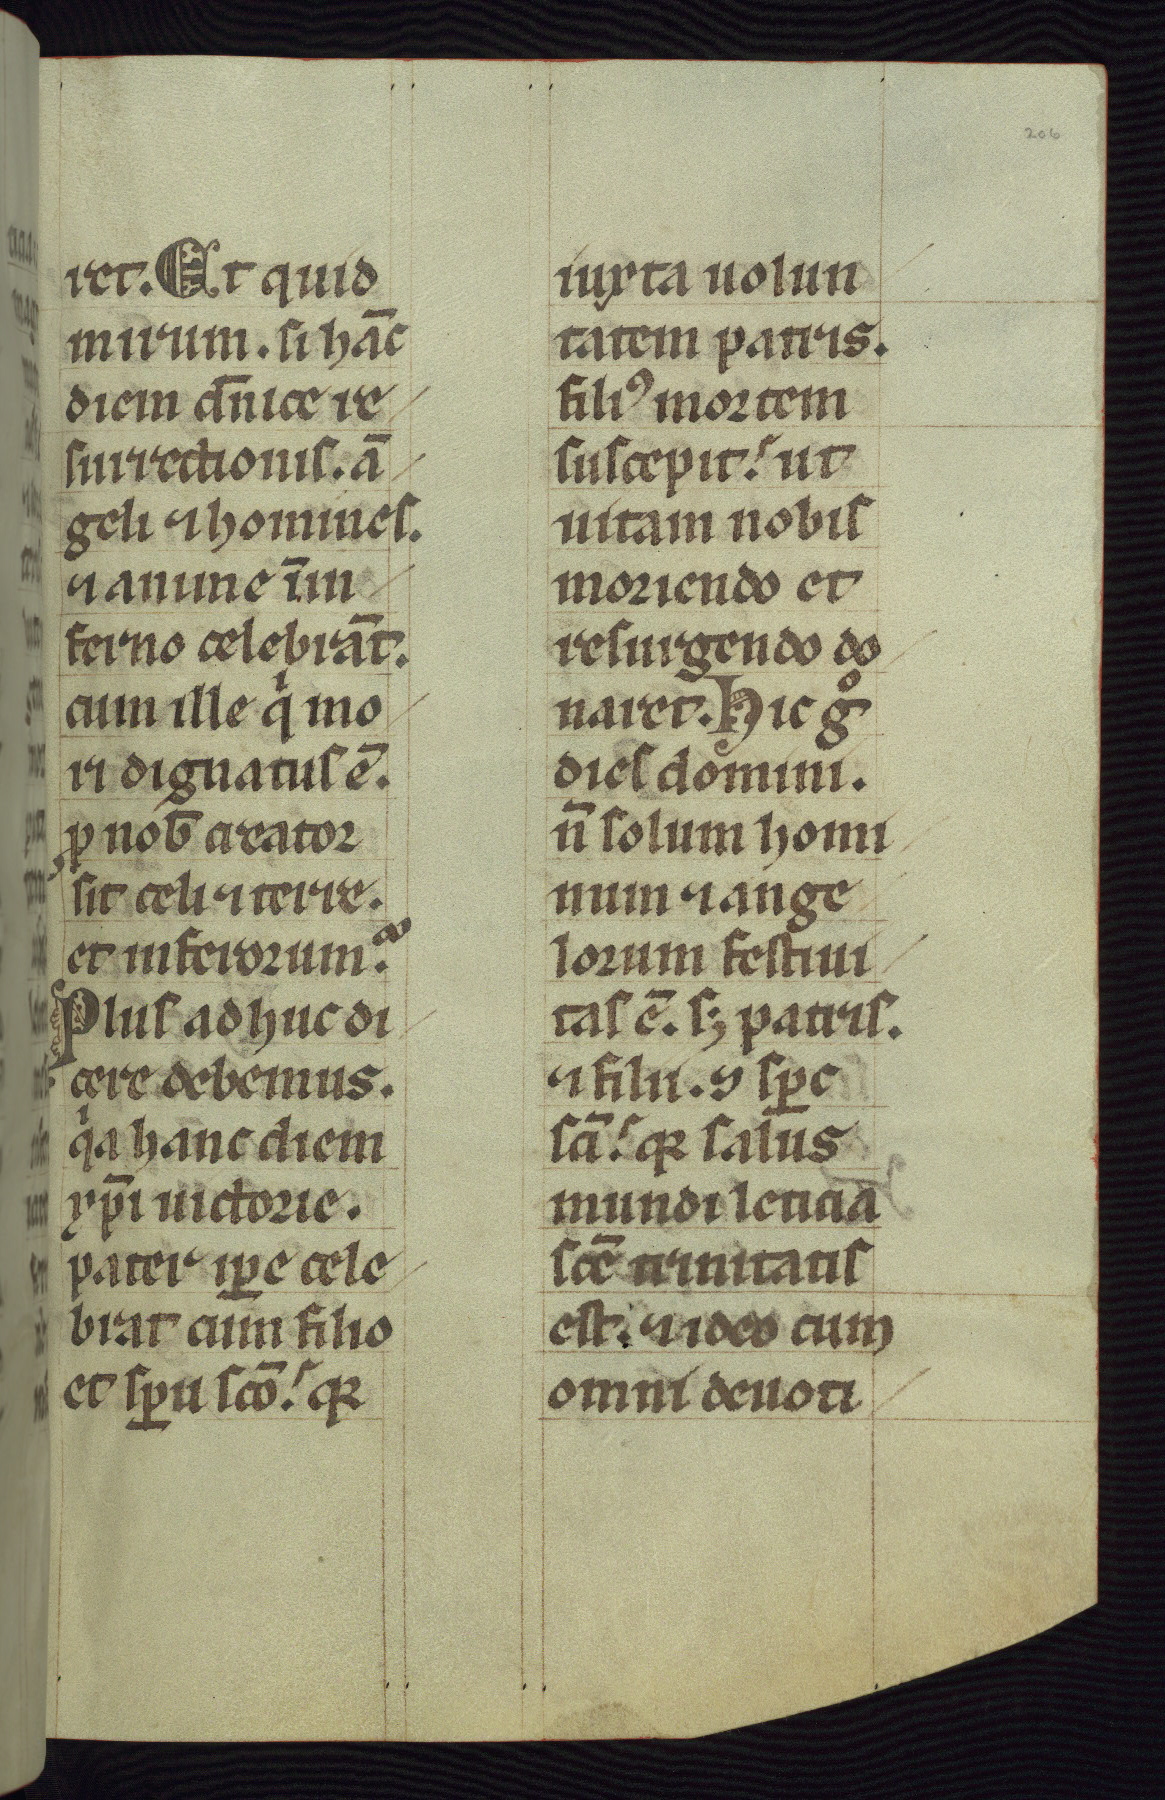 206
ret. Et quid
mirum. si hāc
diem dn̄ice re
surrectionis. ā
geli ⁊ homines.
⁊ anime ī in
ferno celebrāt.
cum ille qͥ mo
ri dignatus ē.
ꝓ nob̄ creator
sit celi ⁊ terre.
et inferorum.
Plus adhuc di
cere debemus.
qͥa hanc diem
xp̄i uictorie.
pater ip̄e cele
brat cum filio
et sp̄u sc̄o. qꝛ
iuxta uolun
tatem patris.
filiꝰ mortem
suscepit. ut
uitam nobis
moriendo et
resurgendo do
naret. Hic gͦ
dies domini.
n̄ solum homi
num ⁊ ange
lorum festiui
tas ē. sꝫ patris.
⁊ filii. ⁊ sp̄c
sc̄i. qꝛ salus
mundi leticia
sc̄e trinitatis
est. ⁊ ideo cum
omni deuoti